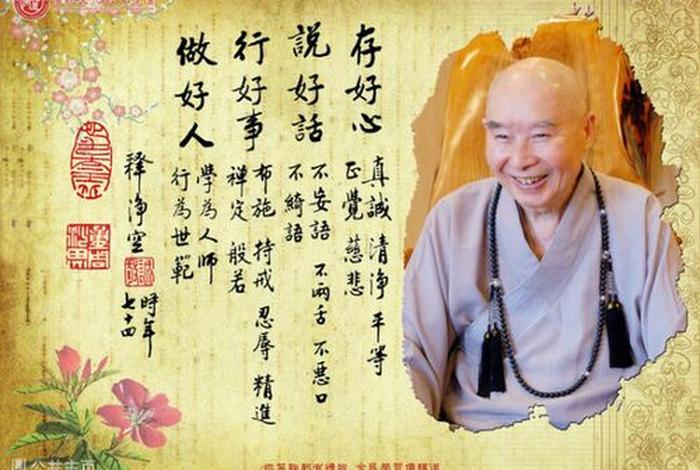 存好心
真誠 清淨 平等
正覺 慈悲
說好話
不妄語 不兩舌 不惡口
不綺語
行好事
布施 持戒 忍辱 精進
禪定 般若
做好人
學為人師
行為世範
釋淨空
時年
七十四